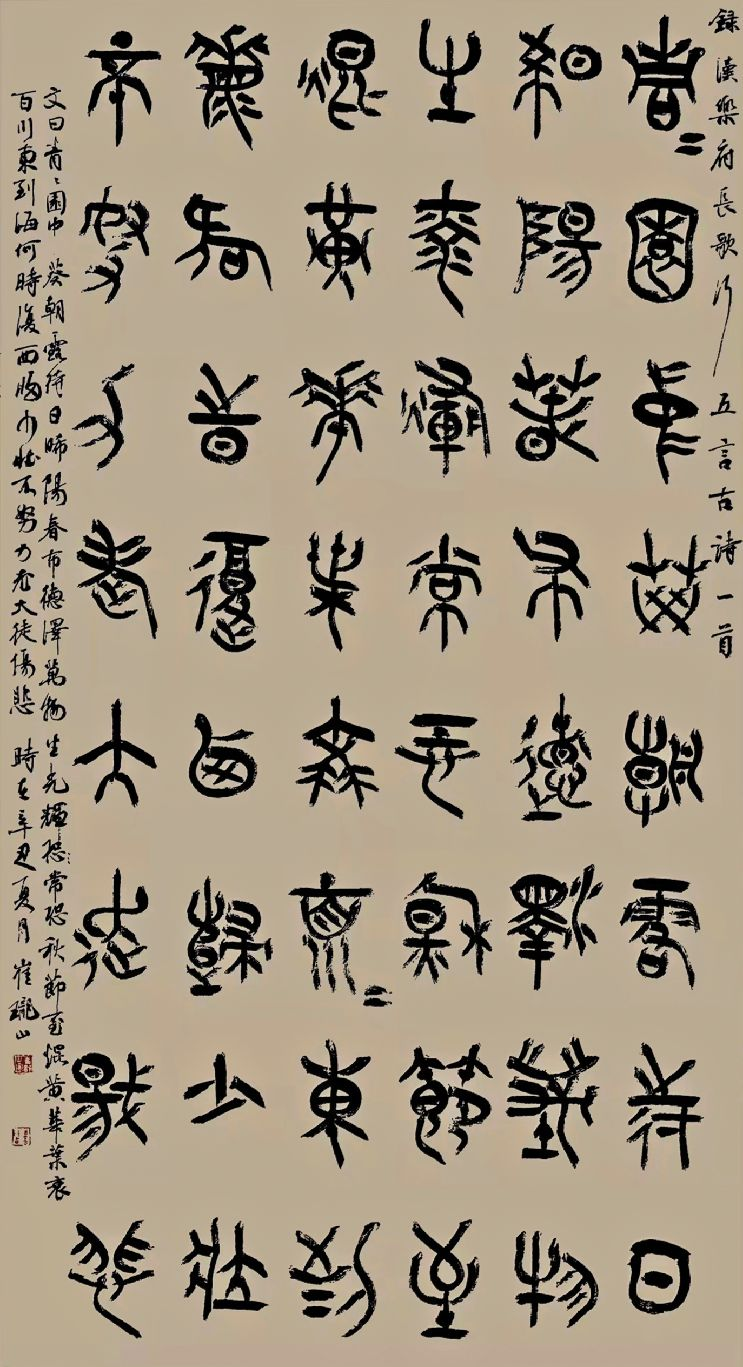 録漢樂府長歌行 五言古詩一首
青〻園中葵朝露待日
晞陽春布德澤萬物
生光輝常恐秋節至
焜黃華葉衰百川〻東到
海何時復西歸少壯
不努力老大徒傷悲
文曰青〻園中葵朝露待日晞陽春布德澤萬物生光輝恐常恐秋節至焜黃華葉衰
百川東到海何時復西歸少壯不努力老大徒傷悲 時在辛丑夏月崔瓏山